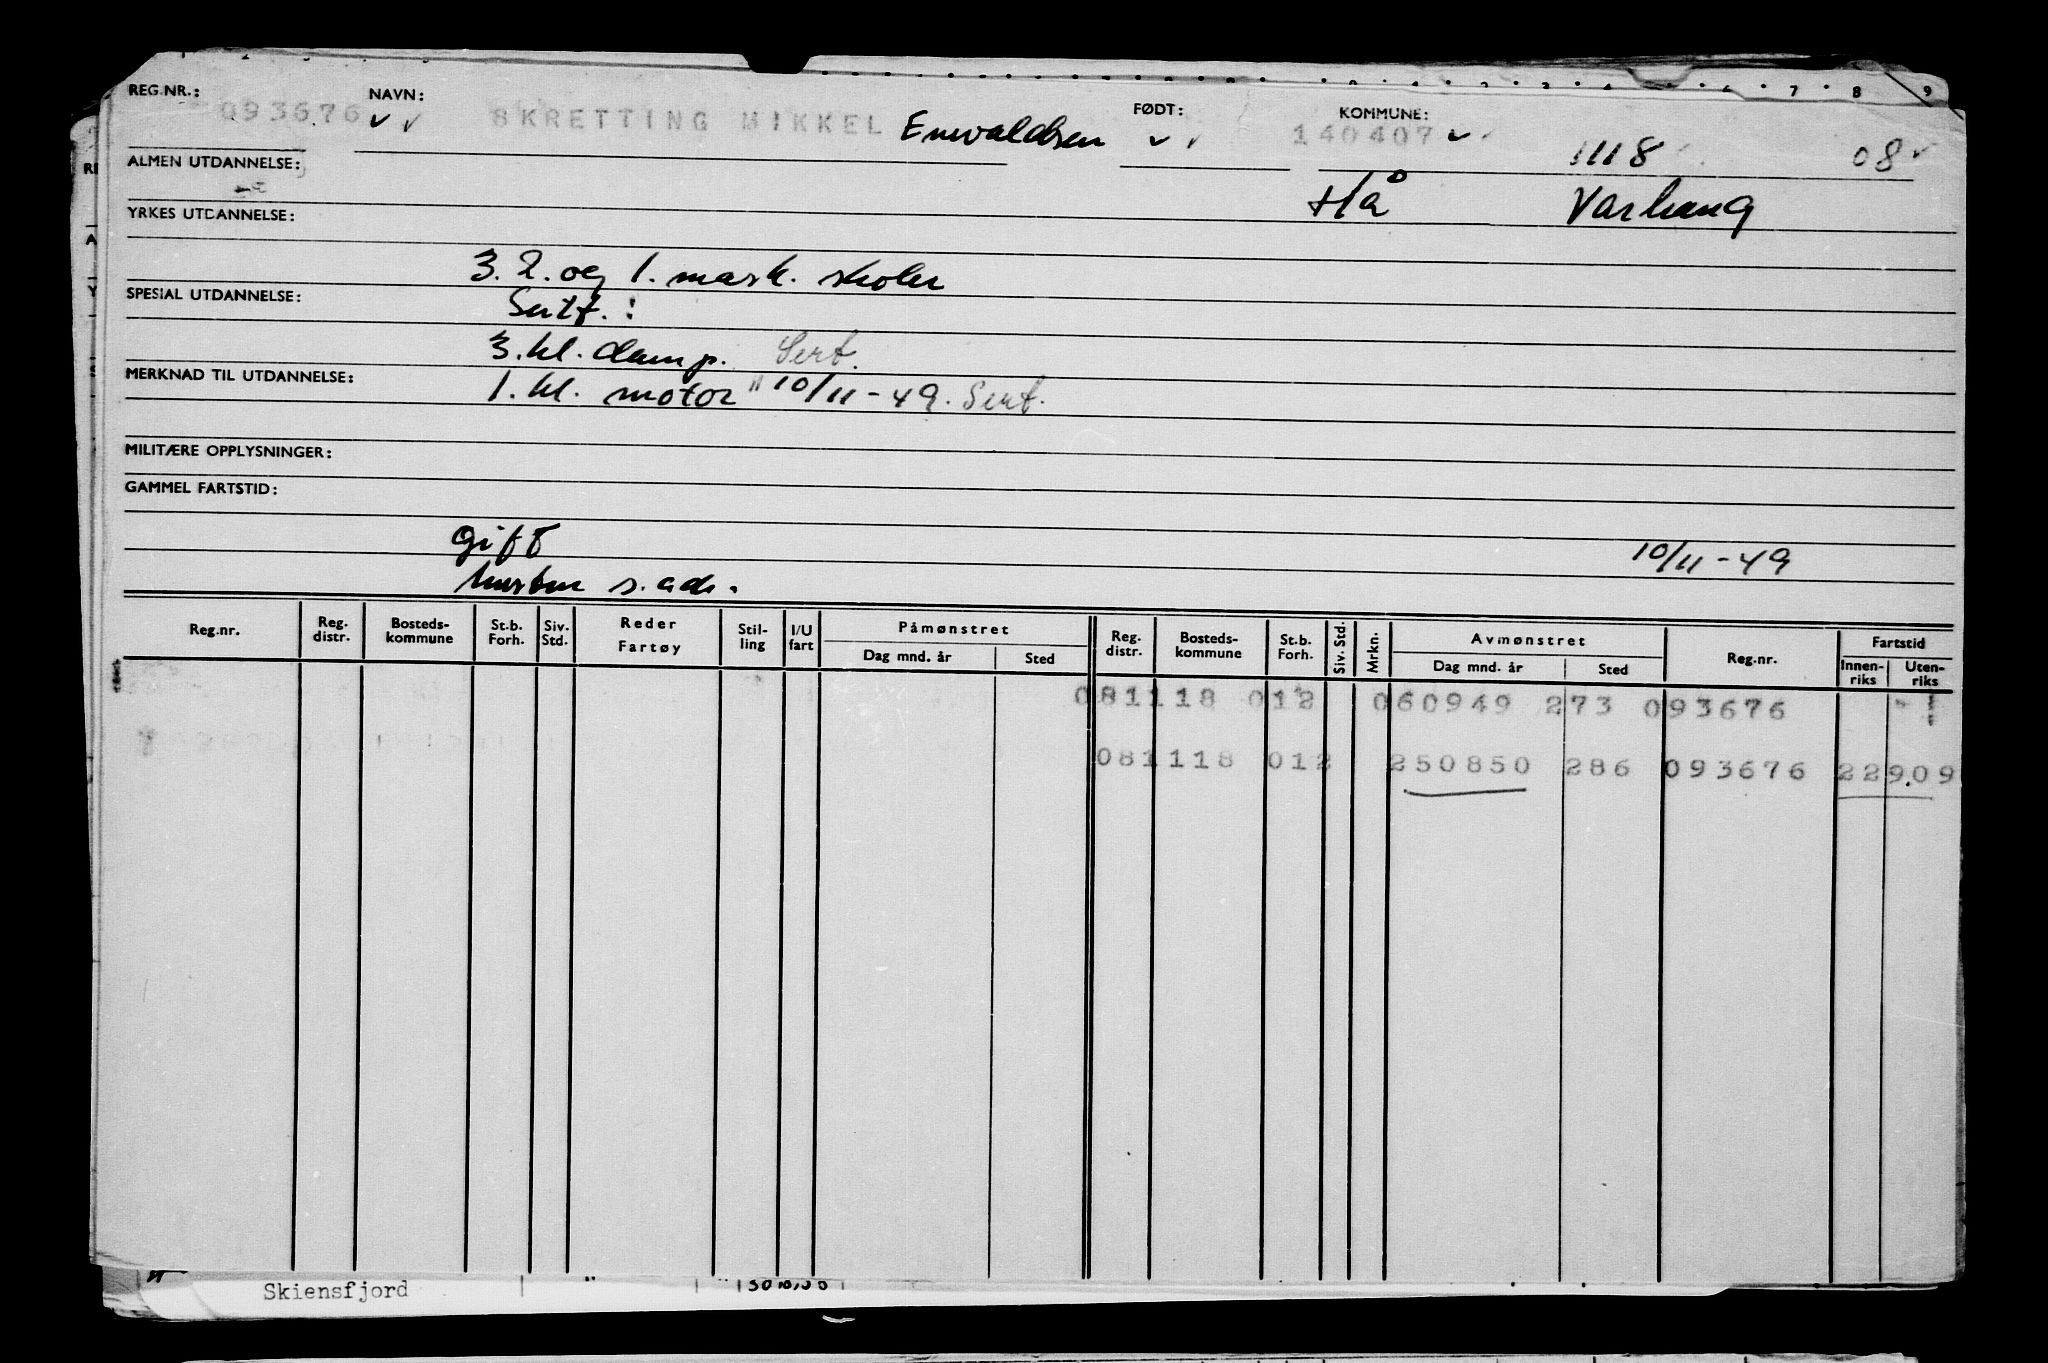 REG.NR.: NAVN: FØDT: KOMMUNE:
093676 SKRETTING MIKKEL Enevaldsen 140407 1118 08
ALMEN UTDANNELSE:
Hå Varhaug
YRKES UTDANNELSE:
3. 2. og 1. mask. skoler
SPESIAL UTDANNELSE:
Sertf. :
3. kl. damp. Sert.
MERKNAD TIL UTDANNELSE:
1. kl. motor " 10/11-49. Sert.
MILITÆRE OPPLYSNINGER:
GAMMEL FARTSTID:
Gift 10/11-49
hustru s. adr.
Reg.nr. Reg. distr. Bosteds-kommune St.b. Forh. Siv. Std. Reder Fartøy Stil-ling I/U fart Påmønstret Dag mnd. år Sted Reg. distr. Bosteds-kommune St.b. Forh. Siv. Std. Mrkn. Avmønstret Dag mnd. år Sted Reg.nr. Fartstid Innen-riks Uten-riks
081118 012 060949 273 093676
081118 012 250850 286 093676 22909
Skiensfjord